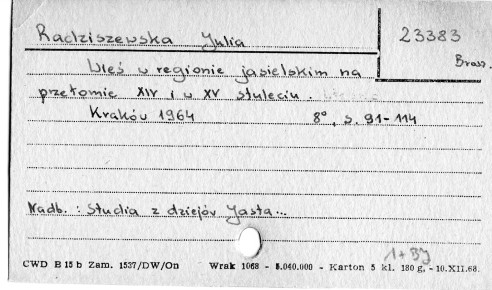 Radziszewska Julia
23383
Brosz.
Wieś w regionie jasielskim na
przełomie XIV i w XV stuleciu.
Kraków 1964 8°, s. 91-114
Nadb. : Studia z dziejów Jasła...
1+BJ
CWD B 15 b Zam. 1537/DW/On Wrak 1068 - 5.040.000 - Karton 5 kl. 180 g, - 10.XII.68.